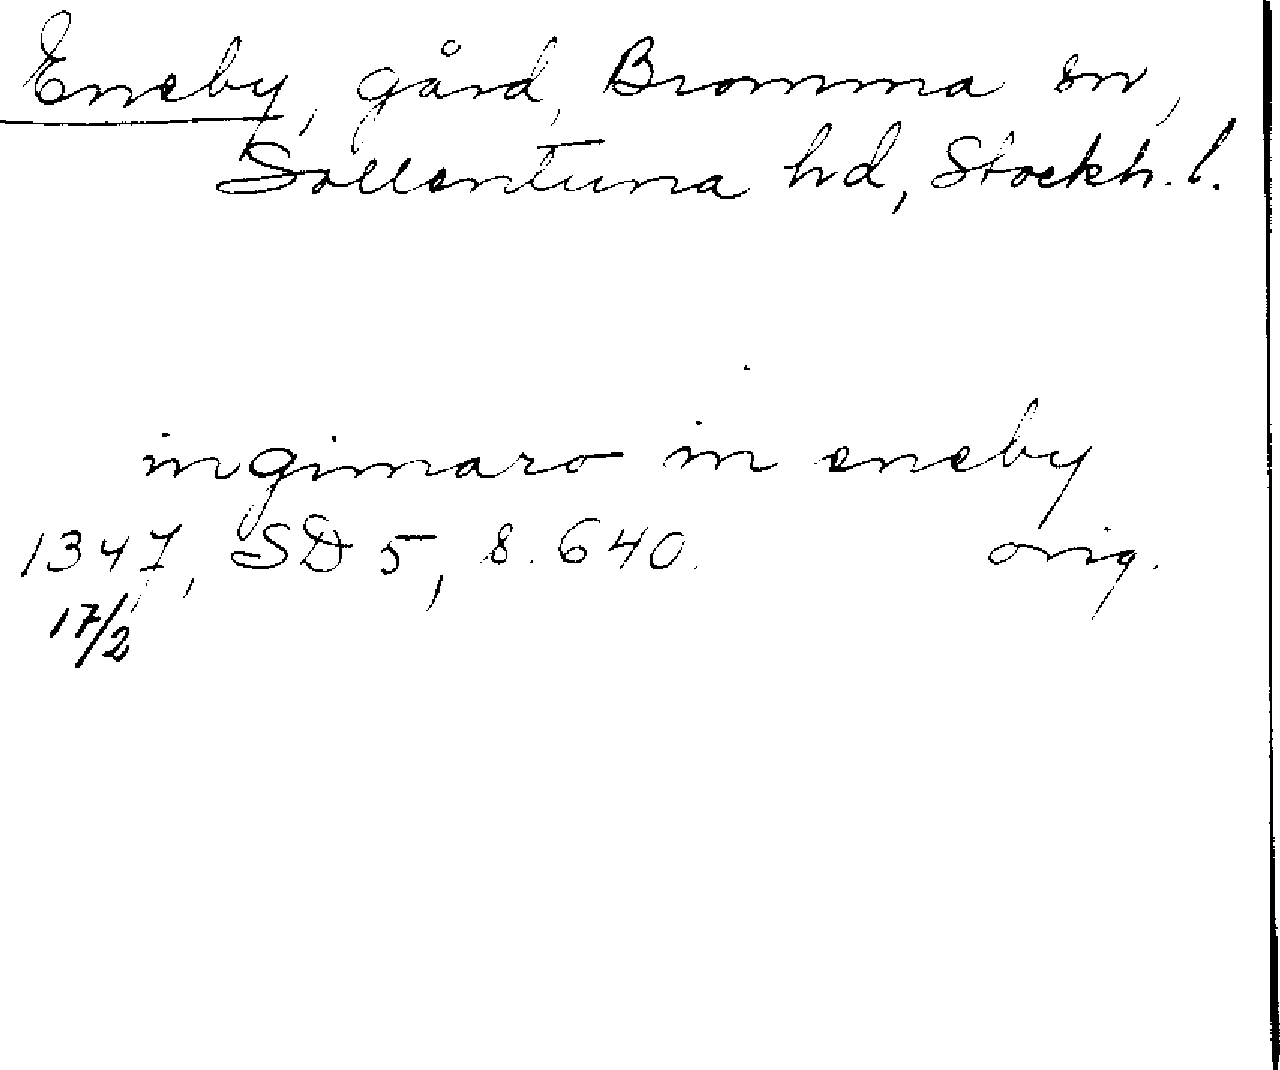 Eneby, gård, Bromma sn,
Sollentuna hd, Stockh. l.
ingimaro in eneby
1347, SD 5, s. 640. orig.
17/2